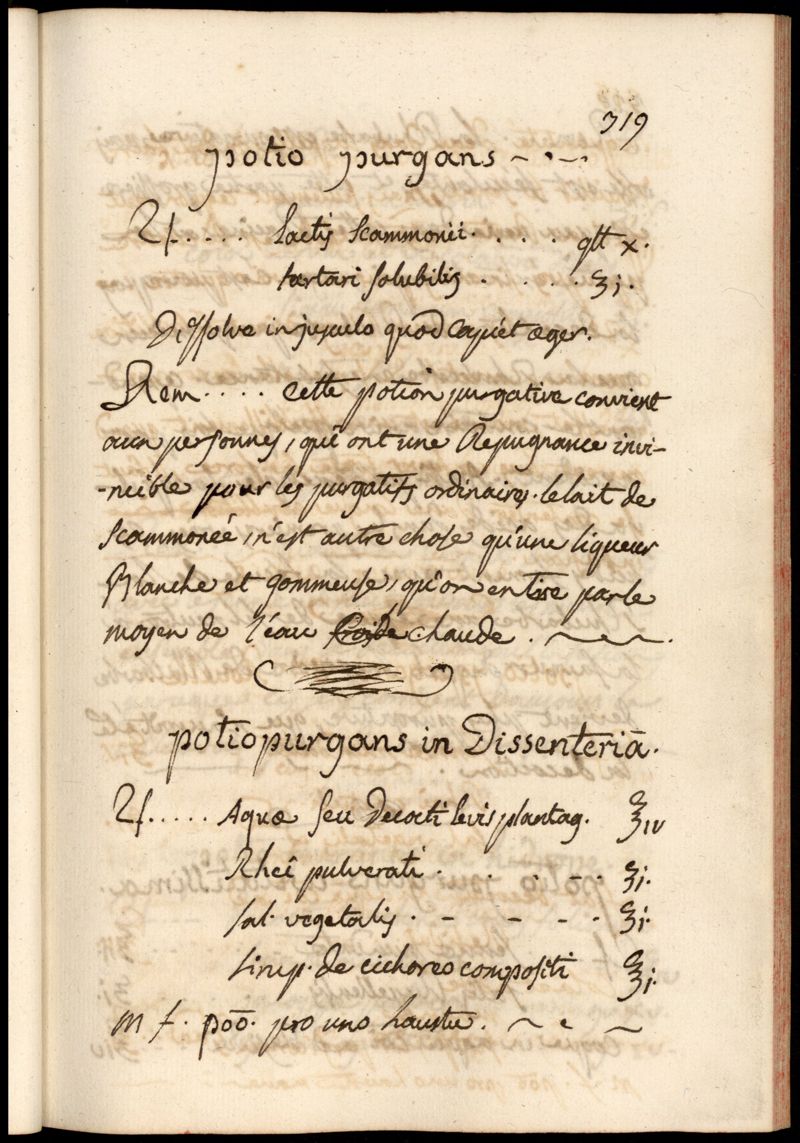 319
potio purgans ~ . ~ .
℞ . . . . Lactis Scammonii . . . . gtt x .
tartari Solubilis . . . . ʒj .
Dissolve in jusculo quod capiet æger .
Rem . . . . Cette potion purgative convient
aux personnes, qui ont une Repugnance invi-
-ncible pour les purgatifs ordinaires . le lait de
Scammoneé, n'est autre chose qu'une liqueur
Blanche et gommeuse, qu'on en tire par le
moyen de l'eau froide chaude . ~ ~ .
potio purgans in Dissenteriā .
℞ . . . . . Aquæ seu Decocti levis plantag . ℥iv
Rhei pulverati . . . - . ʒj .
Sal . vegetalis . - - - . ʒj .
Sirup . de cichoreo compositi ℥j .
M f . poō . pro uno haustu . ~ ~ ~